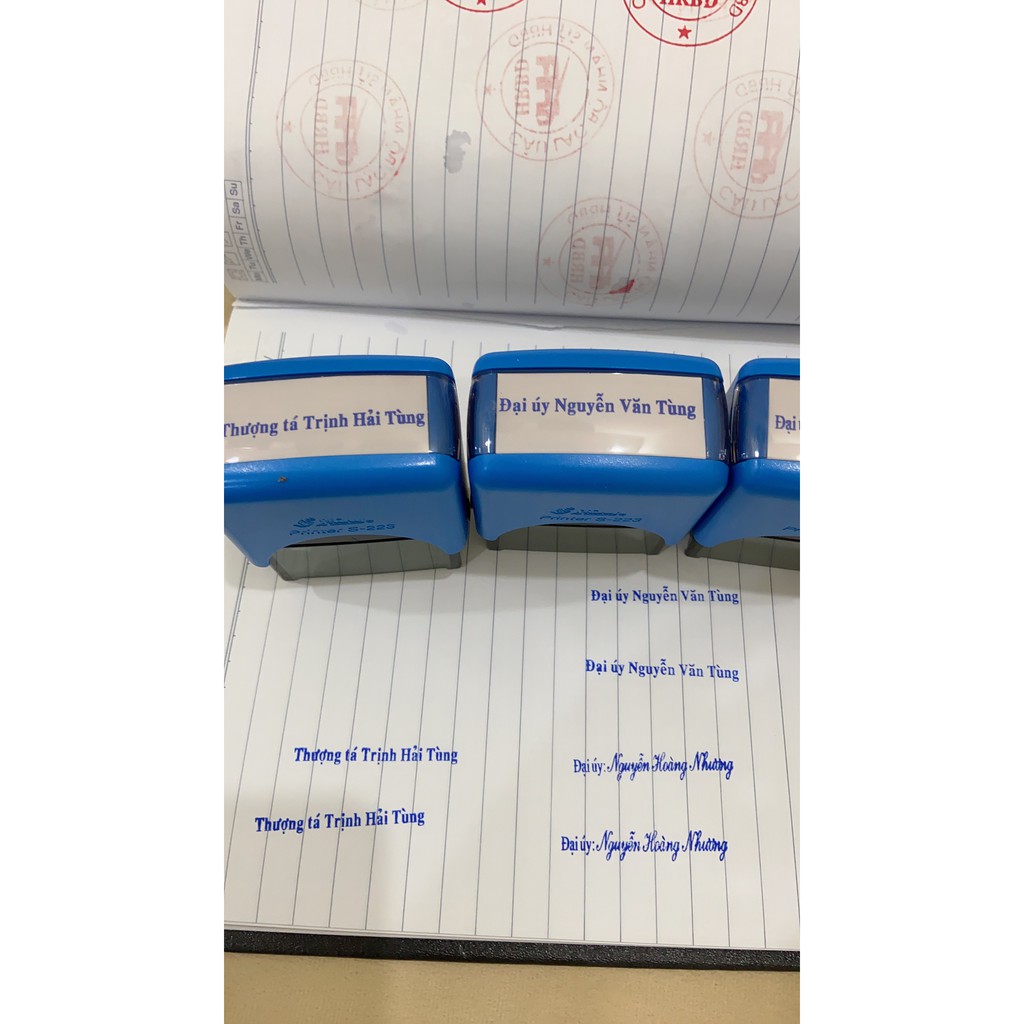 HRBD
HRBD
CÂU LẠC
HRBD
CÂU LẠC
HRBD
CÂU LẠC
HRBD
Mo Tu We Th Fr Sa Su
Thượng tá Trịnh Hải Tùng
Đại úy Nguyễn Văn Tùng
Đại
Printer S-223
Printer S-223
Đại úy Nguyễn Văn Tùng
Đại úy Nguyễn Văn Tùng
Thượng tá Trịnh Hải Tùng
Đại úy: Nguyễn Hoàng Nhương
Thượng tá Trịnh Hải Tùng
Đại úy: Nguyễn Hoàng Nhương